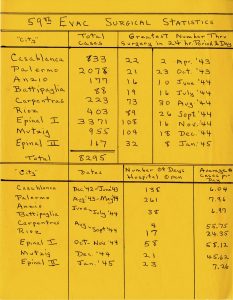 59th Evac Surgical Statistics
"City" Total Cases Greatest Number Thru Surgery in 24 hr. Period & Day
Casablanca 833 22 2 Apr. '43
Palermo 2078 21 23 Oct. '43
Anzio 177 16 10 June '44
Battipaglia 88 19 16 July '44
Carpentras 223 73 30 Aug '44
Rioz 403 89 26 Sept '44
Epinal I 3371 108 16 Nov. '44
Mutzig 955 104 18 Dec. '44
Epinal II 167 32 8 Jan. '45
Total 8295
"City" Dates Number Of Days Hospital Open Average # Cases per Day
Casablanca Dec '42 - June '43 138 6.04
Palermo Aug '43 - May '44 261 7.96
Anzio June -
Battipaglia July '44 38 6.97
Carpentras Aug - 4 55.75
Rioz Sept '44 17 24.35
Epinal I Oct - Nov '44 58 58.12
Mutzig Dec. '44 21 45.62
Epinal II Jan. '45 23 7.26